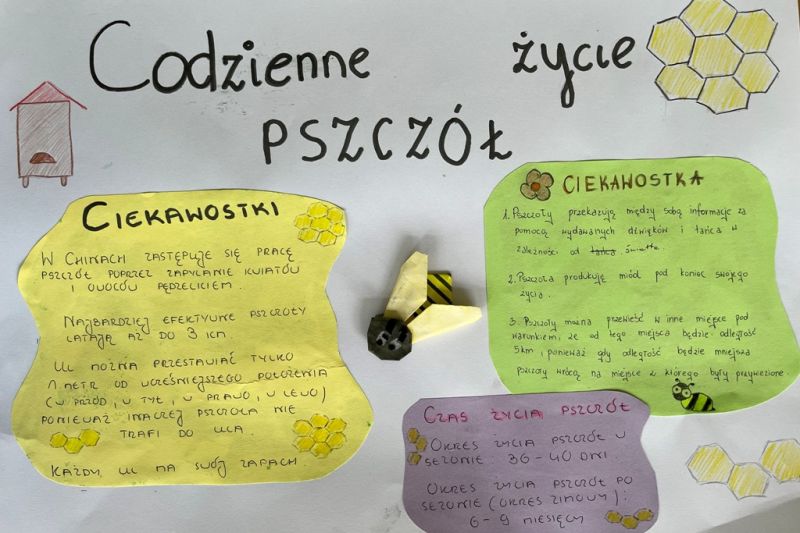 Codzienne życie
PSZCZÓŁ
CIEKAWOSTKI
W CHINACH ZASTĘPUJE SIĘ PRACĘ
PSZCZÓŁ POPRZEZ ZAPYLANIE KWIATÓW
I OWOCÓW PĘDZELKIEM.
NAJBARDZIEJ EFEKTYWNE PSZCZOŁY
LATAJĄ AŻ DO 3 KM
UL MOŻNA PRZESTAWIAĆ TYLKO
1 METR OD WCZEŚNIEJSZEGO POŁOŻENIA
(W PRZÓD, W TYŁ, W PRAWO, W LEWO)
PONIEWAŻ INACZEJ PSZCZOŁA NIE
TRAFI DO ULA.
KAŻDY UL MA SWÓJ ZAPACH.
CIEKAWOSTKA
1. Pszczoły przekazują między sobą informacje za
pomocą wydawanych dźwięków i tańca w
zależności od tańca światła.
2. Pszczoła produkuje miód pod koniec swojego
życia.
3. Pszczoły można przewieźć w inne miejsce pod
warunkiem, że od tego miejsca będzie odległość
5km, ponieważ gdy odległość będzie mniejsza
pszczoły wrócą na miejsce z którego były przywiezione.
CZAS ŻYCIA PSZCZÓŁ
OKRES ŻYCIA PSZCZÓŁ W
SEZONIE 36-40 DNI.
OKRES ŻYCIA PSZCZÓŁ PO
SEZONIE (OKRES ZIMOWY):
6-9 MIESIĘCY